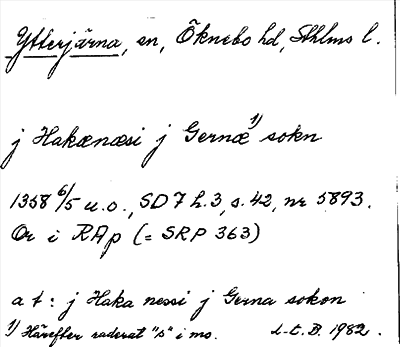 Ytterjärna, sn, Öknebo hd, Sthlms l.
j Hakænæsi j Gernæ¹⁾ sokn
1358 6/5 u.o., SD 7 h.3, s.42, nr 5893.
Or i RAp (= SRP 363)
at: j Haka nessi j Gerna sokon
1) Härefter raderat "s" i ms. L-t. B. 1982.